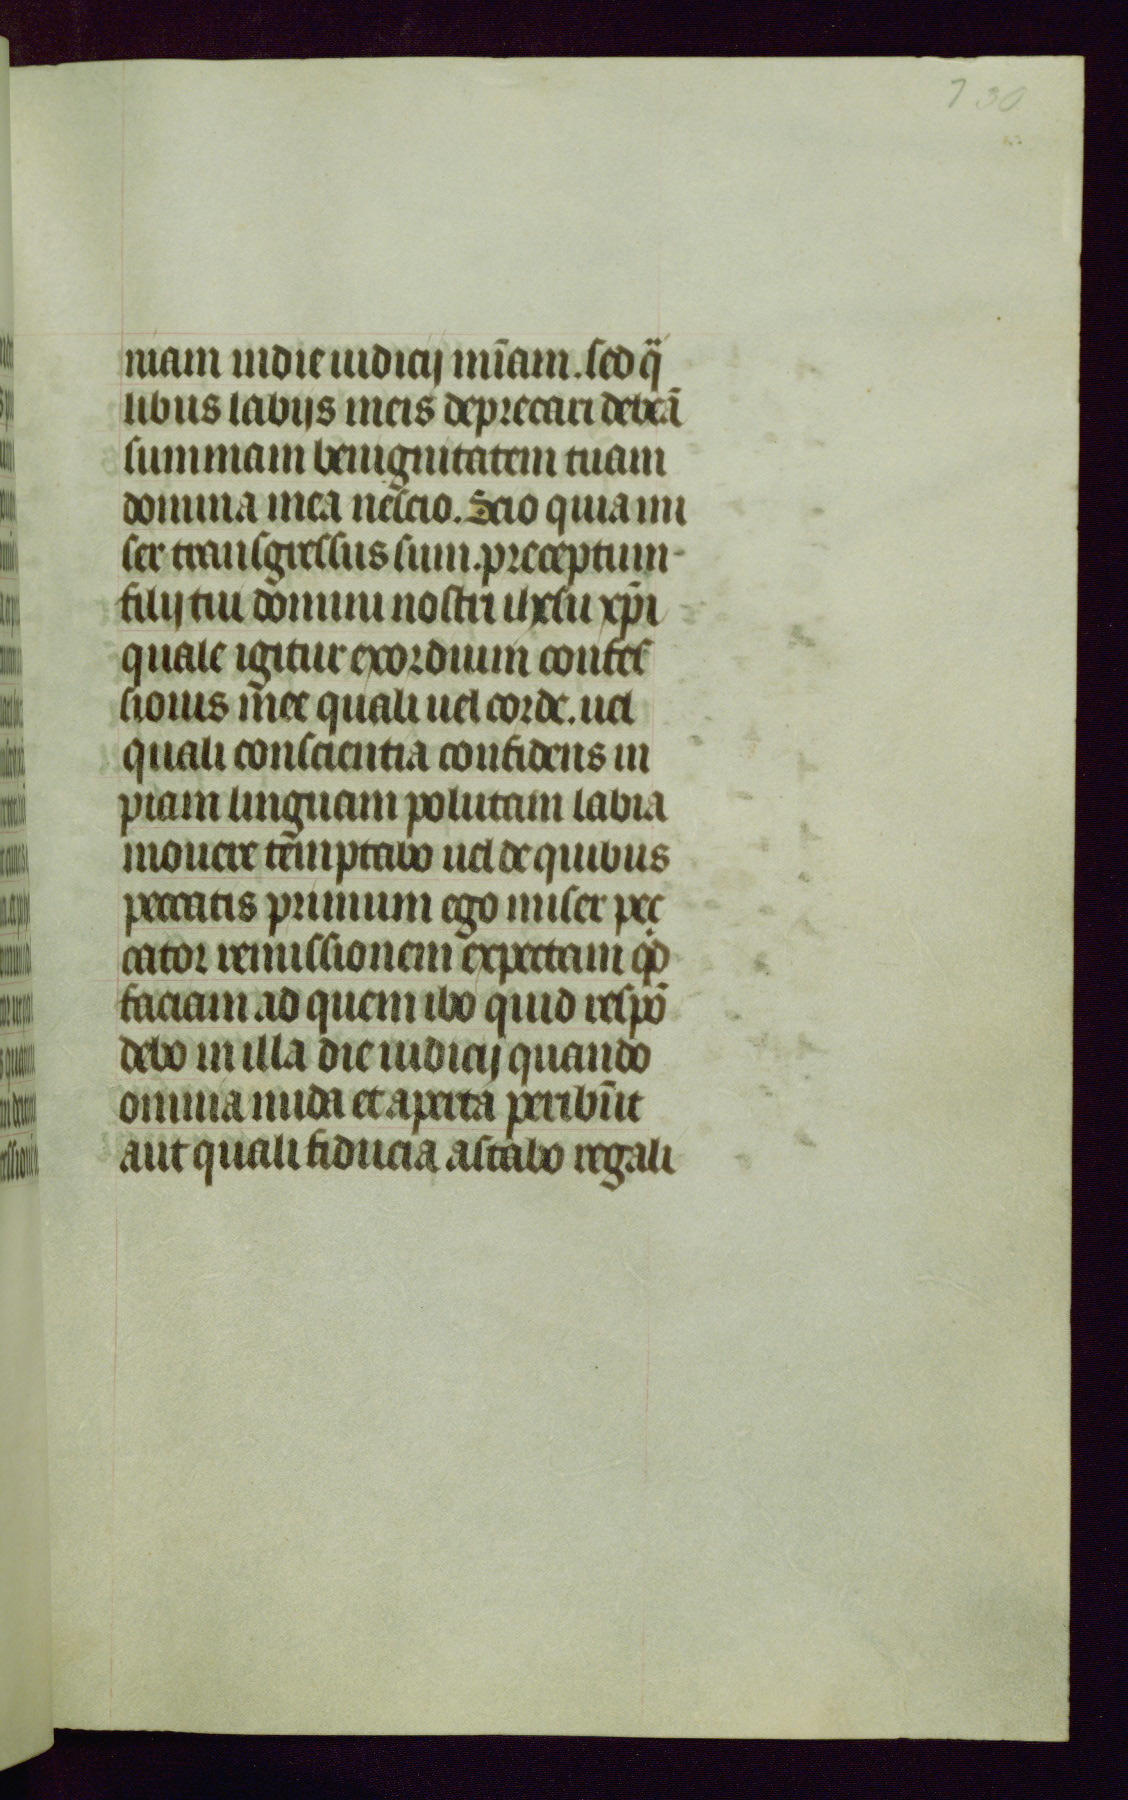 130
niam in die iudicij mīam. sed q̄
libus labijs meis deprecari debeā
summam benignitatem tuam
domina mea nescio. Scio quia mi
ser transgressus sum. preceptum
filij tui domini nostri ihesu xp̄i
quale igitur exordium confes
sionis mee quali uel corde. uel
quali conscientia confidens in
piam linguam polutam labia
mouere temptabo uel de quibus
peccatis primum ego miser pec
cator remissionem expectam qd
faciam ad quem ibo quid respō
debo in illa die iudicij quando
omnia nuda et aperta peribūt
aut quali fiducia astabo regali